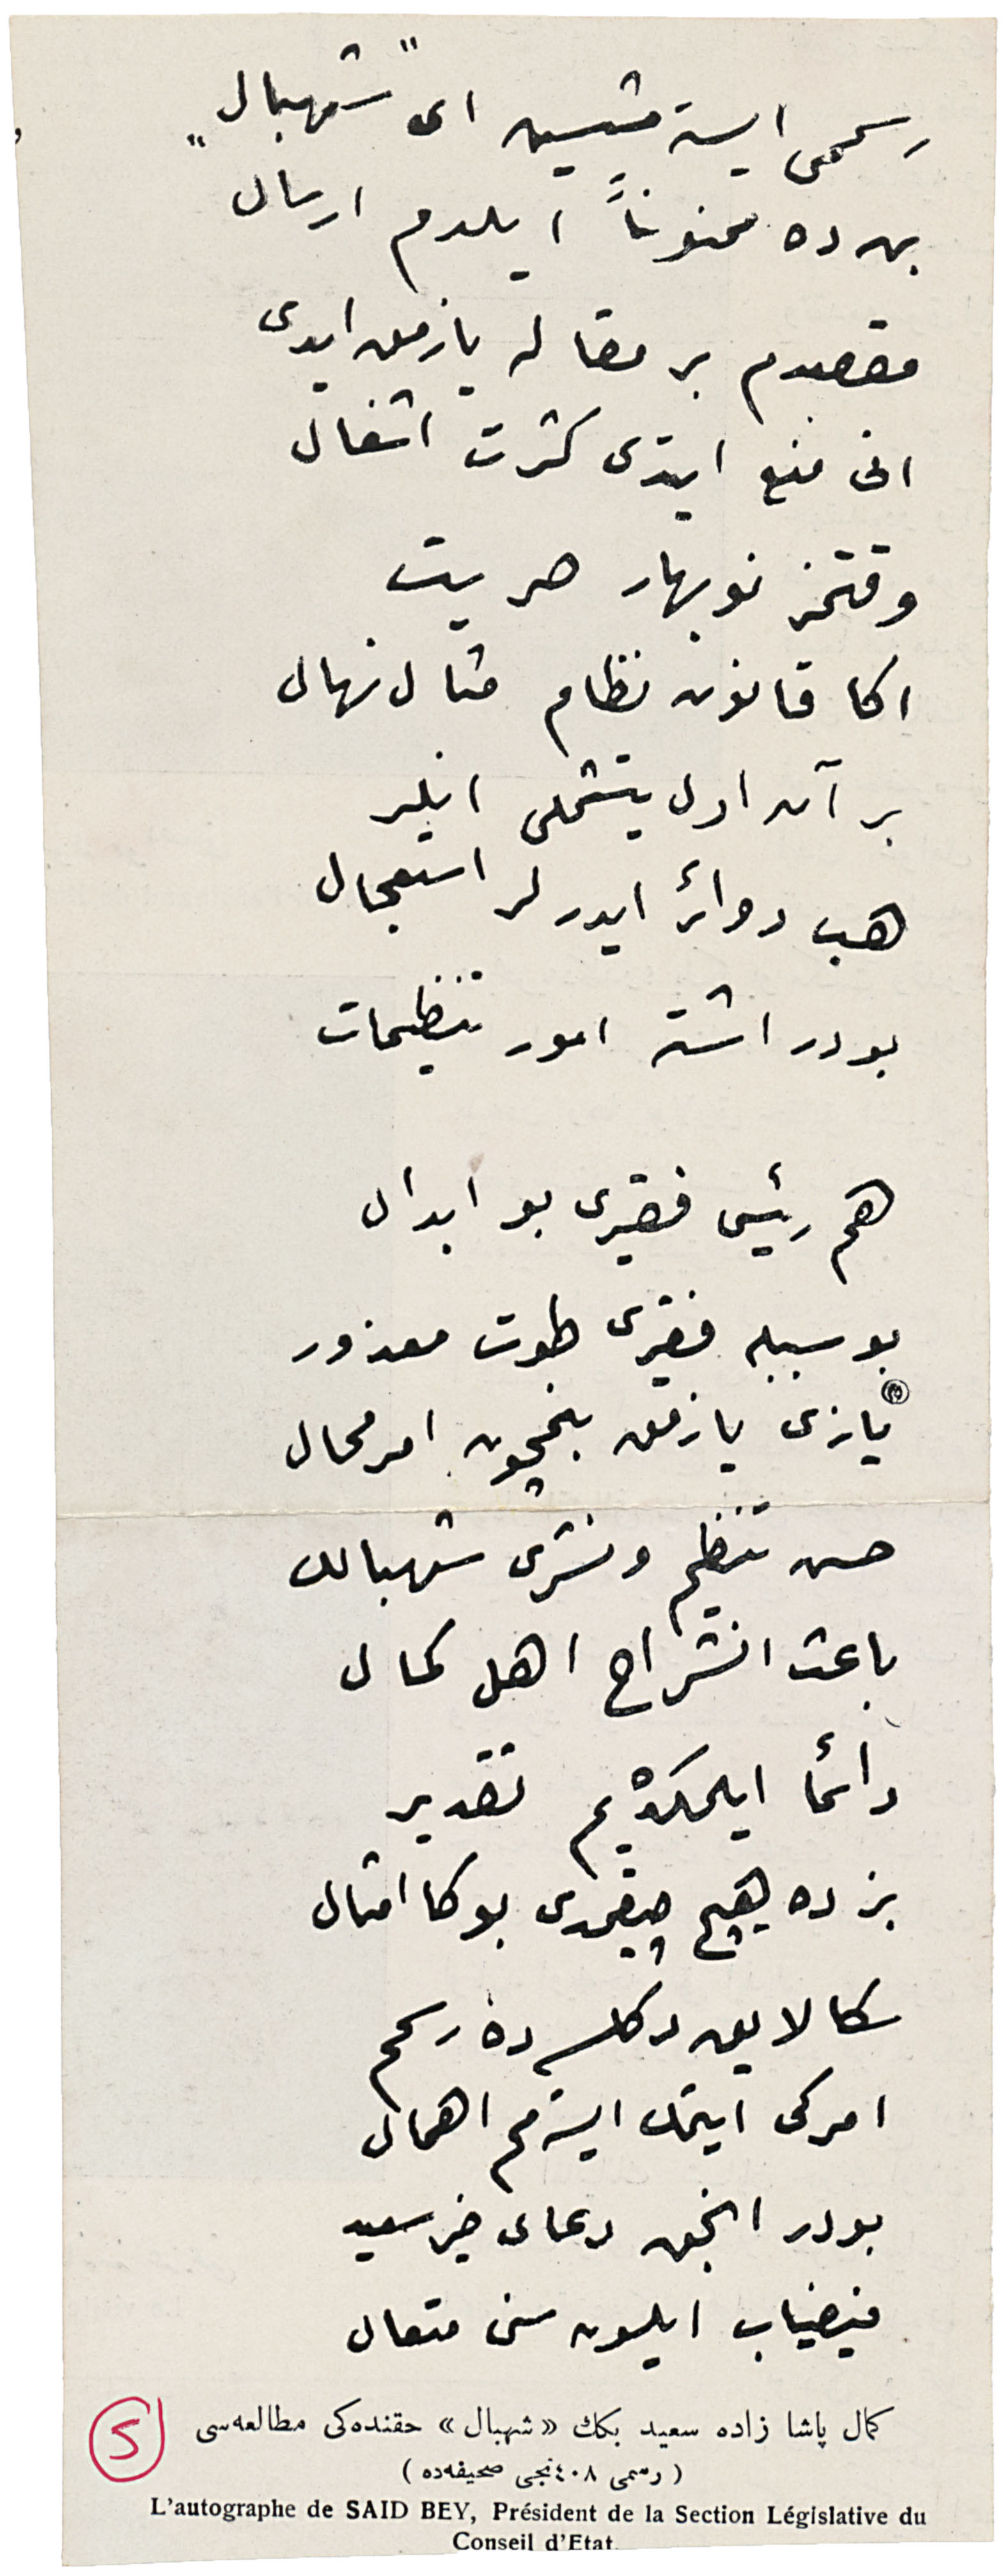 رسممی ایسته‌مشسین ای "شهبال"
بن ده ممنوناً ایلدم ارسال
مقصدم بر مقاله یازمق ایدی
انی منع ایتدی کثرت اشغال
وقتمز نوبهار حریت
اکا قانون نظام مثال نهال
بر آن اول یتشملی انلر
هب دوائر ایدرلر استعجال
بودر اشته امور تنظیمات
هم رئیسی فقیری بو ابدال
بو سببله فقیری طوت معذور
یازی یازمق بنمچون امر محال
حسن تنظیم و نشری شهبالك
باعث انشراح اهل كمال
دائما ایلمكده‌یم تقدیر
بزده هیچ چیقمدی بوكا امثال
سكا لایق دكلسه‌ده رسمم
امركی ایتمك ایستمم اهمال
بودر انجق دعای خیر سعید
فیضیاب ایلسون سنی متعال
كمال پاشا زاده سعید بكك «شهبال» حقنده‌كی مطالعه‌سی
( رسمی ٤٠٨نجی صحیفه‌ده )
L'autographe de SAID BEY, Président de la Section Législative du
Conseil d'Etat.
5